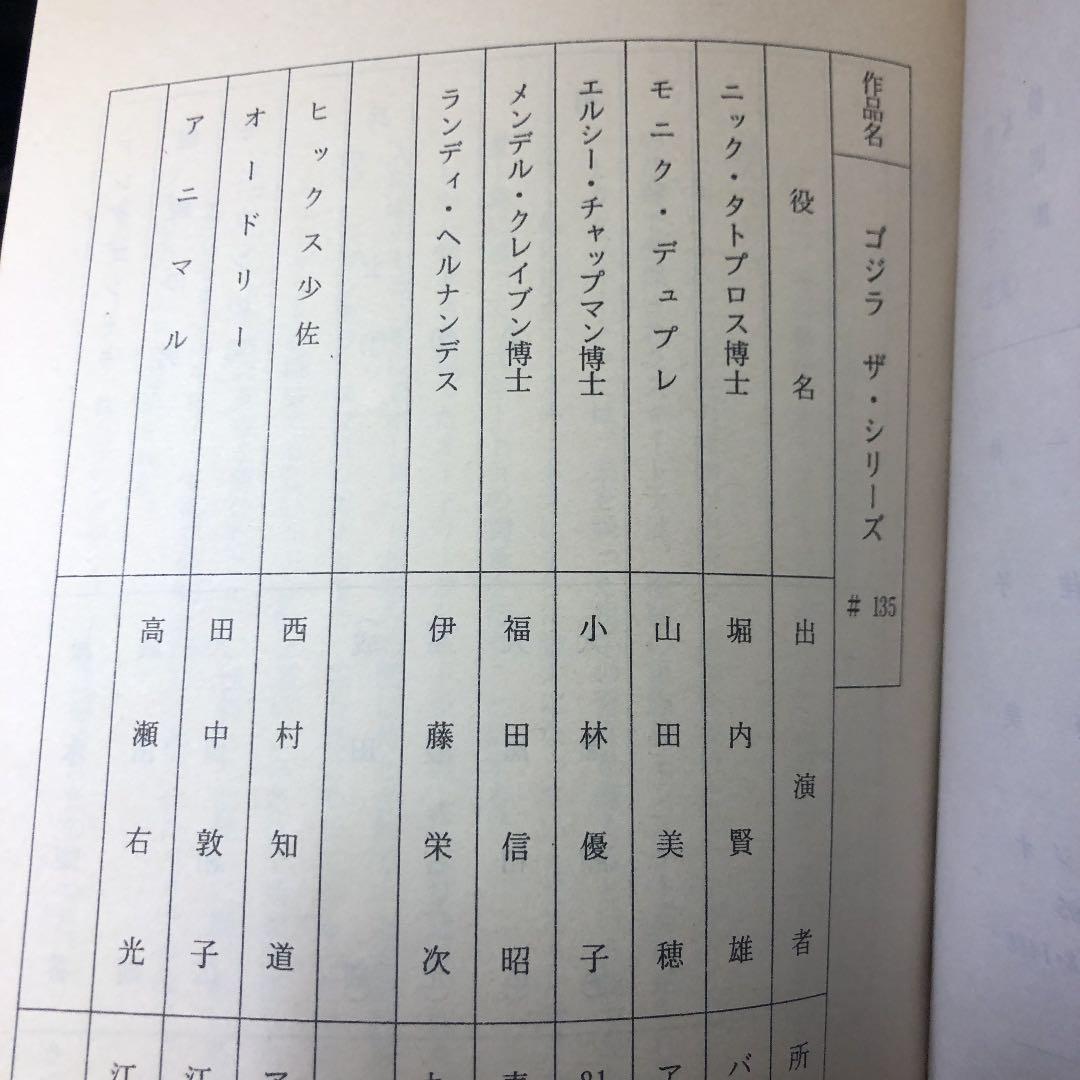 作品名 ゴジラ ザ・シリーズ # 135
役名 出演者 所
ニック・タトプロス博士 堀内賢雄 バ
モニク・デュプレ 山田美穂 ア
エルシー・チャップマン博士 小林優子 81
メンデル・クレイブン博士 福田信昭
ランディ・ヘルナンデス 伊藤栄次
ヒックス少佐 西村知道 ア
オードリー 田中敦子 江
アニマル 高瀬右光 江